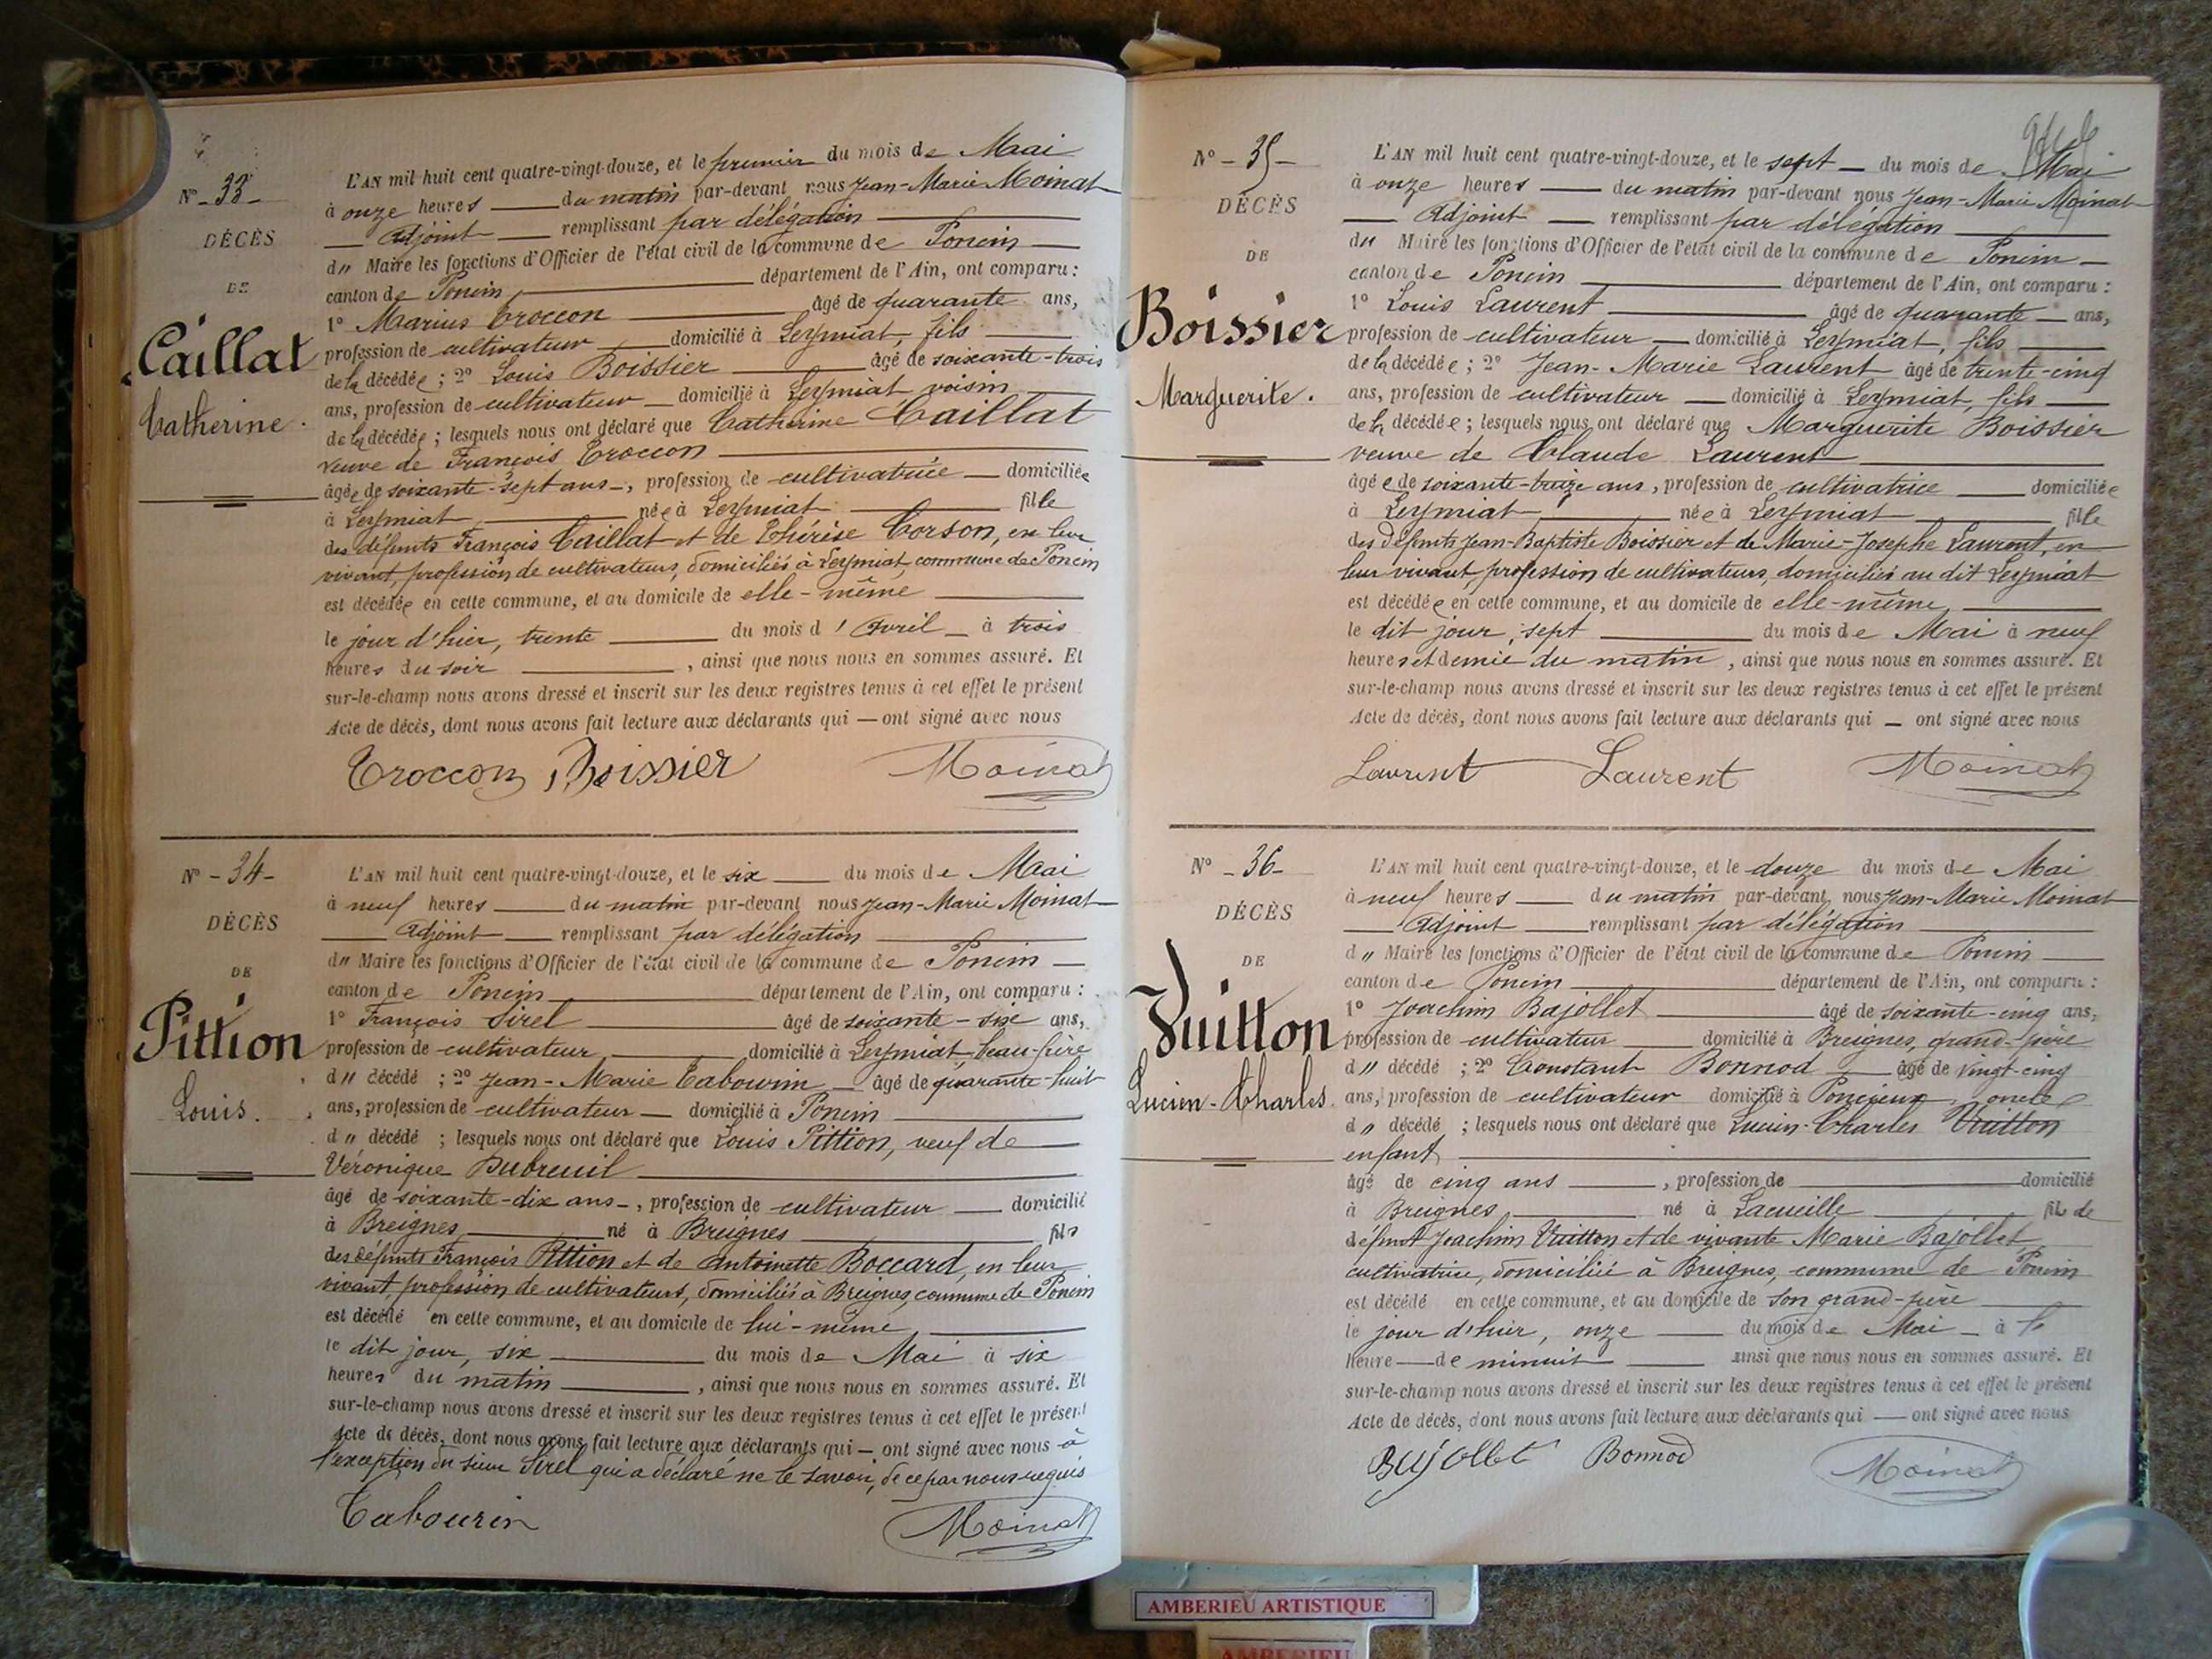 N° - 33 -
DÉCÈS
DE
Caillat
Catherine.
L'AN mil huit cent quatre-vingt-douze, et le premier du mois de Mai
à onze heures du matin par-devant nous Jean-Marie Moinat
Adjoint remplissant par délégation
du Maire les fonctions d'Officier de l'état civil de la commune de Poncin
canton de Poncin département de l'Ain, ont comparu :
1° Marius Croccon âgé de quarante ans,
profession de cultivateur domicilié à Leymiat, fils
de la décédée ; 2° Louis Boissier âgé de soixante-trois
ans, profession de cultivateur domicilié à Leymiat voisin
de la décédée ; lesquels nous ont déclaré que Catherine Caillat
veuve de François Croccon
âgée de soixante-sept ans, profession de cultivatrice domiciliée
à Leymiat née à Leymiat fille
des défunts François Caillat et de Thérèse Corson, en leur
vivant, profession de cultivateurs, domiciliés à Leymiat, commune de Poncin
est décédée en cette commune, et au domicile de elle-même
le jour d'hier, trente du mois d'Avril à trois
heures du soir, ainsi que nous nous en sommes assuré. Et
sur-le-champ nous avons dressé et inscrit sur les deux registres tenus à cet effet le présent
Acte de décès, dont nous avons fait lecture aux déclarants qui — ont signé avec nous
Croccon Boissier Moinat
N° - 34 -
DÉCÈS
DE
Pittion
Louis.
L'AN mil huit cent quatre-vingt-douze, et le six du mois de Mai
à neuf heures du matin par-devant nous Jean-Marie Moinat
Adjoint remplissant par délégation
du Maire les fonctions d'Officier de l'état civil de la commune de Poncin
canton de Poncin département de l'Ain, ont comparu :
1° François Sirel âgé de soixante-six ans,
profession de cultivateur domicilié à Leymiat beau-frère
du décédé ; 2° Jean-Marie Tabourin âgé de quarante-huit
ans, profession de cultivateur domicilié à Poncin
du décédé ; lesquels nous ont déclaré que Louis Pittion, veuf de
Véronique Dubreuil
âgé de soixante-dix ans, profession de cultivateur domicilié
à Breignes né à Breignes fils
des défunts François Pittion et de Antoinette Boccard, en leur
vivant, profession de cultivateurs, domiciliés à Breignes, commune de Poncin
est décédé en cette commune, et au domicile de lui-même
le dit jour, six du mois de Mai à six
heures du matin, ainsi que nous nous en sommes assuré. Et
sur-le-champ nous avons dressé et inscrit sur les deux registres tenus à cet effet le présent
Acte de décès, dont nous avons fait lecture aux déclarants qui — ont signé avec nous à
l'exception du sieur Sirel qui a déclaré ne le savoir, de ce par nous requis
Tabourin Moinat
N° - 35 -
DÉCÈS
DE
Boissier
Marguerite.
L'AN mil huit cent quatre-vingt-douze, et le sept du mois de Mai
à onze heures du matin par-devant nous Jean-Marie Moinat
Adjoint remplissant par délégation
du Maire les fonctions d'Officier de l'état civil de la commune de Poncin
canton de Poncin département de l'Ain, ont comparu :
1° Louis Laurent âgé de quarante ans,
profession de cultivateur domicilié à Leymiat, fils
de la décédée ; 2° Jean-Marie Laurent âgé de trente-cinq
ans, profession de cultivateur domicilié à Leymiat, fils
de la décédée ; lesquels nous ont déclaré que Marguerite Boissier
veuve de Claude Laurent
âgée de soixante-treize ans, profession de cultivatrice domiciliée
à Leymiat née à Leymiat fille
des défunts Jean-Baptiste Boissier et de Marie-Josephe Laurent, en
leur vivant, profession de cultivateurs, domiciliés au dit Leymiat
est décédée en cette commune, et au domicile de elle-même,
le dit jour, sept du mois de Mai à neuf
heures et demie du matin, ainsi que nous nous en sommes assuré. Et
sur-le-champ nous avons dressé et inscrit sur les deux registres tenus à cet effet le présent
Acte de décès, dont nous avons fait lecture aux déclarants qui — ont signé avec nous
Laurent Laurent Moinat
N° - 36 -
DÉCÈS
DE
Vuitton
Lucien-Charles
L'AN mil huit cent quatre-vingt-douze, et le douze du mois de Mai
à neuf heures du matin par-devant nous Jean-Marie Moinat
Adjoint remplissant par délégation
du Maire les fonctions d'Officier de l'état civil de la commune de Poncin
canton de Poncin département de l'Ain, ont comparu :
1° Joachim Bajollet âgé de soixante-cinq ans,
profession de cultivateur domicilié à Breignes, grand-père
du décédé ; 2° Constant Bonnod âgé de vingt-cinq
ans, profession de cultivateur domicilié à Poncieux, oncle
du décédé ; lesquels nous ont déclaré que Lucien-Charles Vuitton
enfant
âgé de cinq ans, profession de domicilié
à Breignes né à Lacueille fils de
défunt Joachim Vuitton et de vivante Marie Bajollet
cultivatrice, domiciliée à Breignes, commune de Poncin
est décédé en cette commune, et au domicile de son grand-père
le jour d'hier, onze du mois de Mai à l'
heure de minuit ainsi que nous nous en sommes assuré. Et
sur-le-champ nous avons dressé et inscrit sur les deux registres tenus à cet effet le présent
Acte de décès, dont nous avons fait lecture aux déclarants qui — ont signé avec nous
Bajollet Bonnod Moinat
AMBERIEU ARTISTIQUE
AMBERIEU